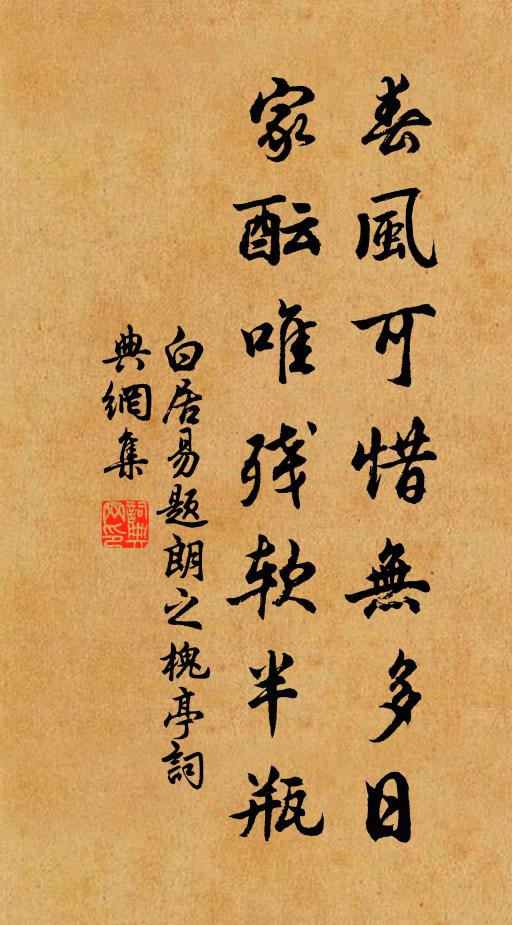 春風可惜無多日
家酝唯残软半瓶
白居易题朗之槐亭詞
典網集
詞典网印